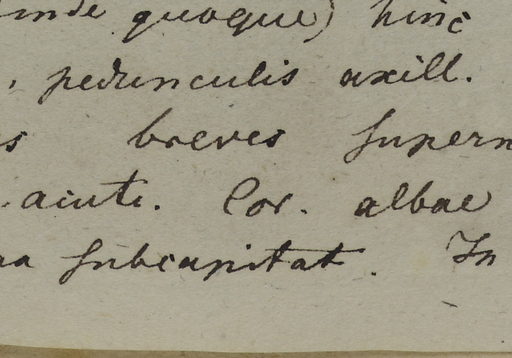 inde quoque) hinc
, pedunculis axill.
s breves supern
acuti. Cor. albae
na subcapitat. In